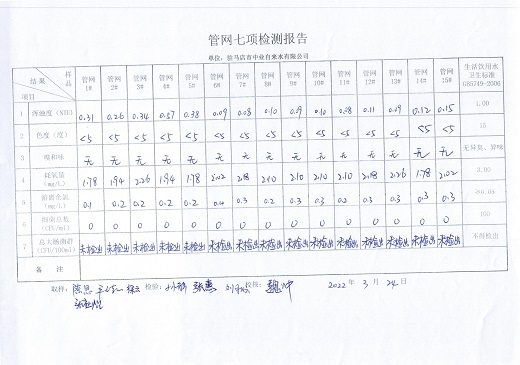 管网七项检测报告
单位：驻马店市中业自来水有限公司
结果 样品 项目 管网1# 管网2# 管网3# 管网4# 管网5# 管网6# 管网7# 管网8# 管网9# 管网10# 管网11# 管网12# 管网13# 管网14# 管网15# 生活饮用水卫生标准GB5749-2006
1 浑浊度（NTU） 0.31 0.26 0.34 0.37 0.38 0.09 0.08 0.10 0.09 0.10 0.08 0.11 0.09 0.12 0.15 1.00
2 色度（度） <5 <5 <5 <5 <5 <5 <5 <5 <5 <5 <5 <5 <5 <5 <5 15
3 嗅和味 无 无 无 无 无 无 无 无 无 无 无 无 无 无 无 无异臭、异味
4 耗氧量（mg/L） 1.78 1.94 2.26 1.94 1.78 2.02 2.18 2.10 2.10 2.10 2.10 2.18 2.26 1.78 2.02 3.00
5 游离余氯（mg/L） 0.1 0.2 0.2 0.2 0.2 0.4 0.3 0.2 0.3 0.3 0.2 0.3 0.3 0.3 0.3 ≥0.05
6 细菌总数（CFU/ml） 0 0 0 0 0 0 0 0 0 0 0 0 0 0 0 100
7 总大肠菌群（CFU/100ml） 未检出 未检出 未检出 未检出 未检出 未检出 未检出 未检出 未检出 未检出 未检出 未检出 未检出 未检出 未检出 不得检出
备 注
取样： 检验： 校核： 2022 年 3 月 24 日